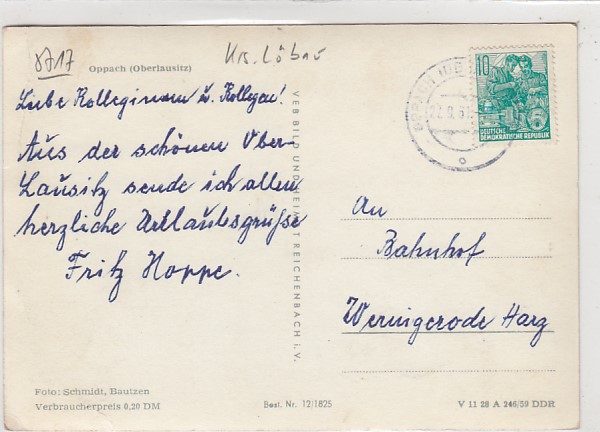 8717
Krs. Löbau
Oppach (Oberlausitz)
Liebe Kolleginnen u. Kollegen!
Aus der schönen Ober-
Lausitz sende ich allen
herzliche Urlaubsgrüße
Fritz Hoppe.
VEB BILD UND HEIMAT REICHENBACH I. V.
10
DEUTSCHE
DEMOKRATISCHE REPUBLIK
OPPACH
An
Bahnhof
Wernigerode Harz
Foto: Schmidt, Bautzen
Verbraucherpreis 0,20 DM
Best. Nr. 12/1825
V 11 28 A 246/59 DDR